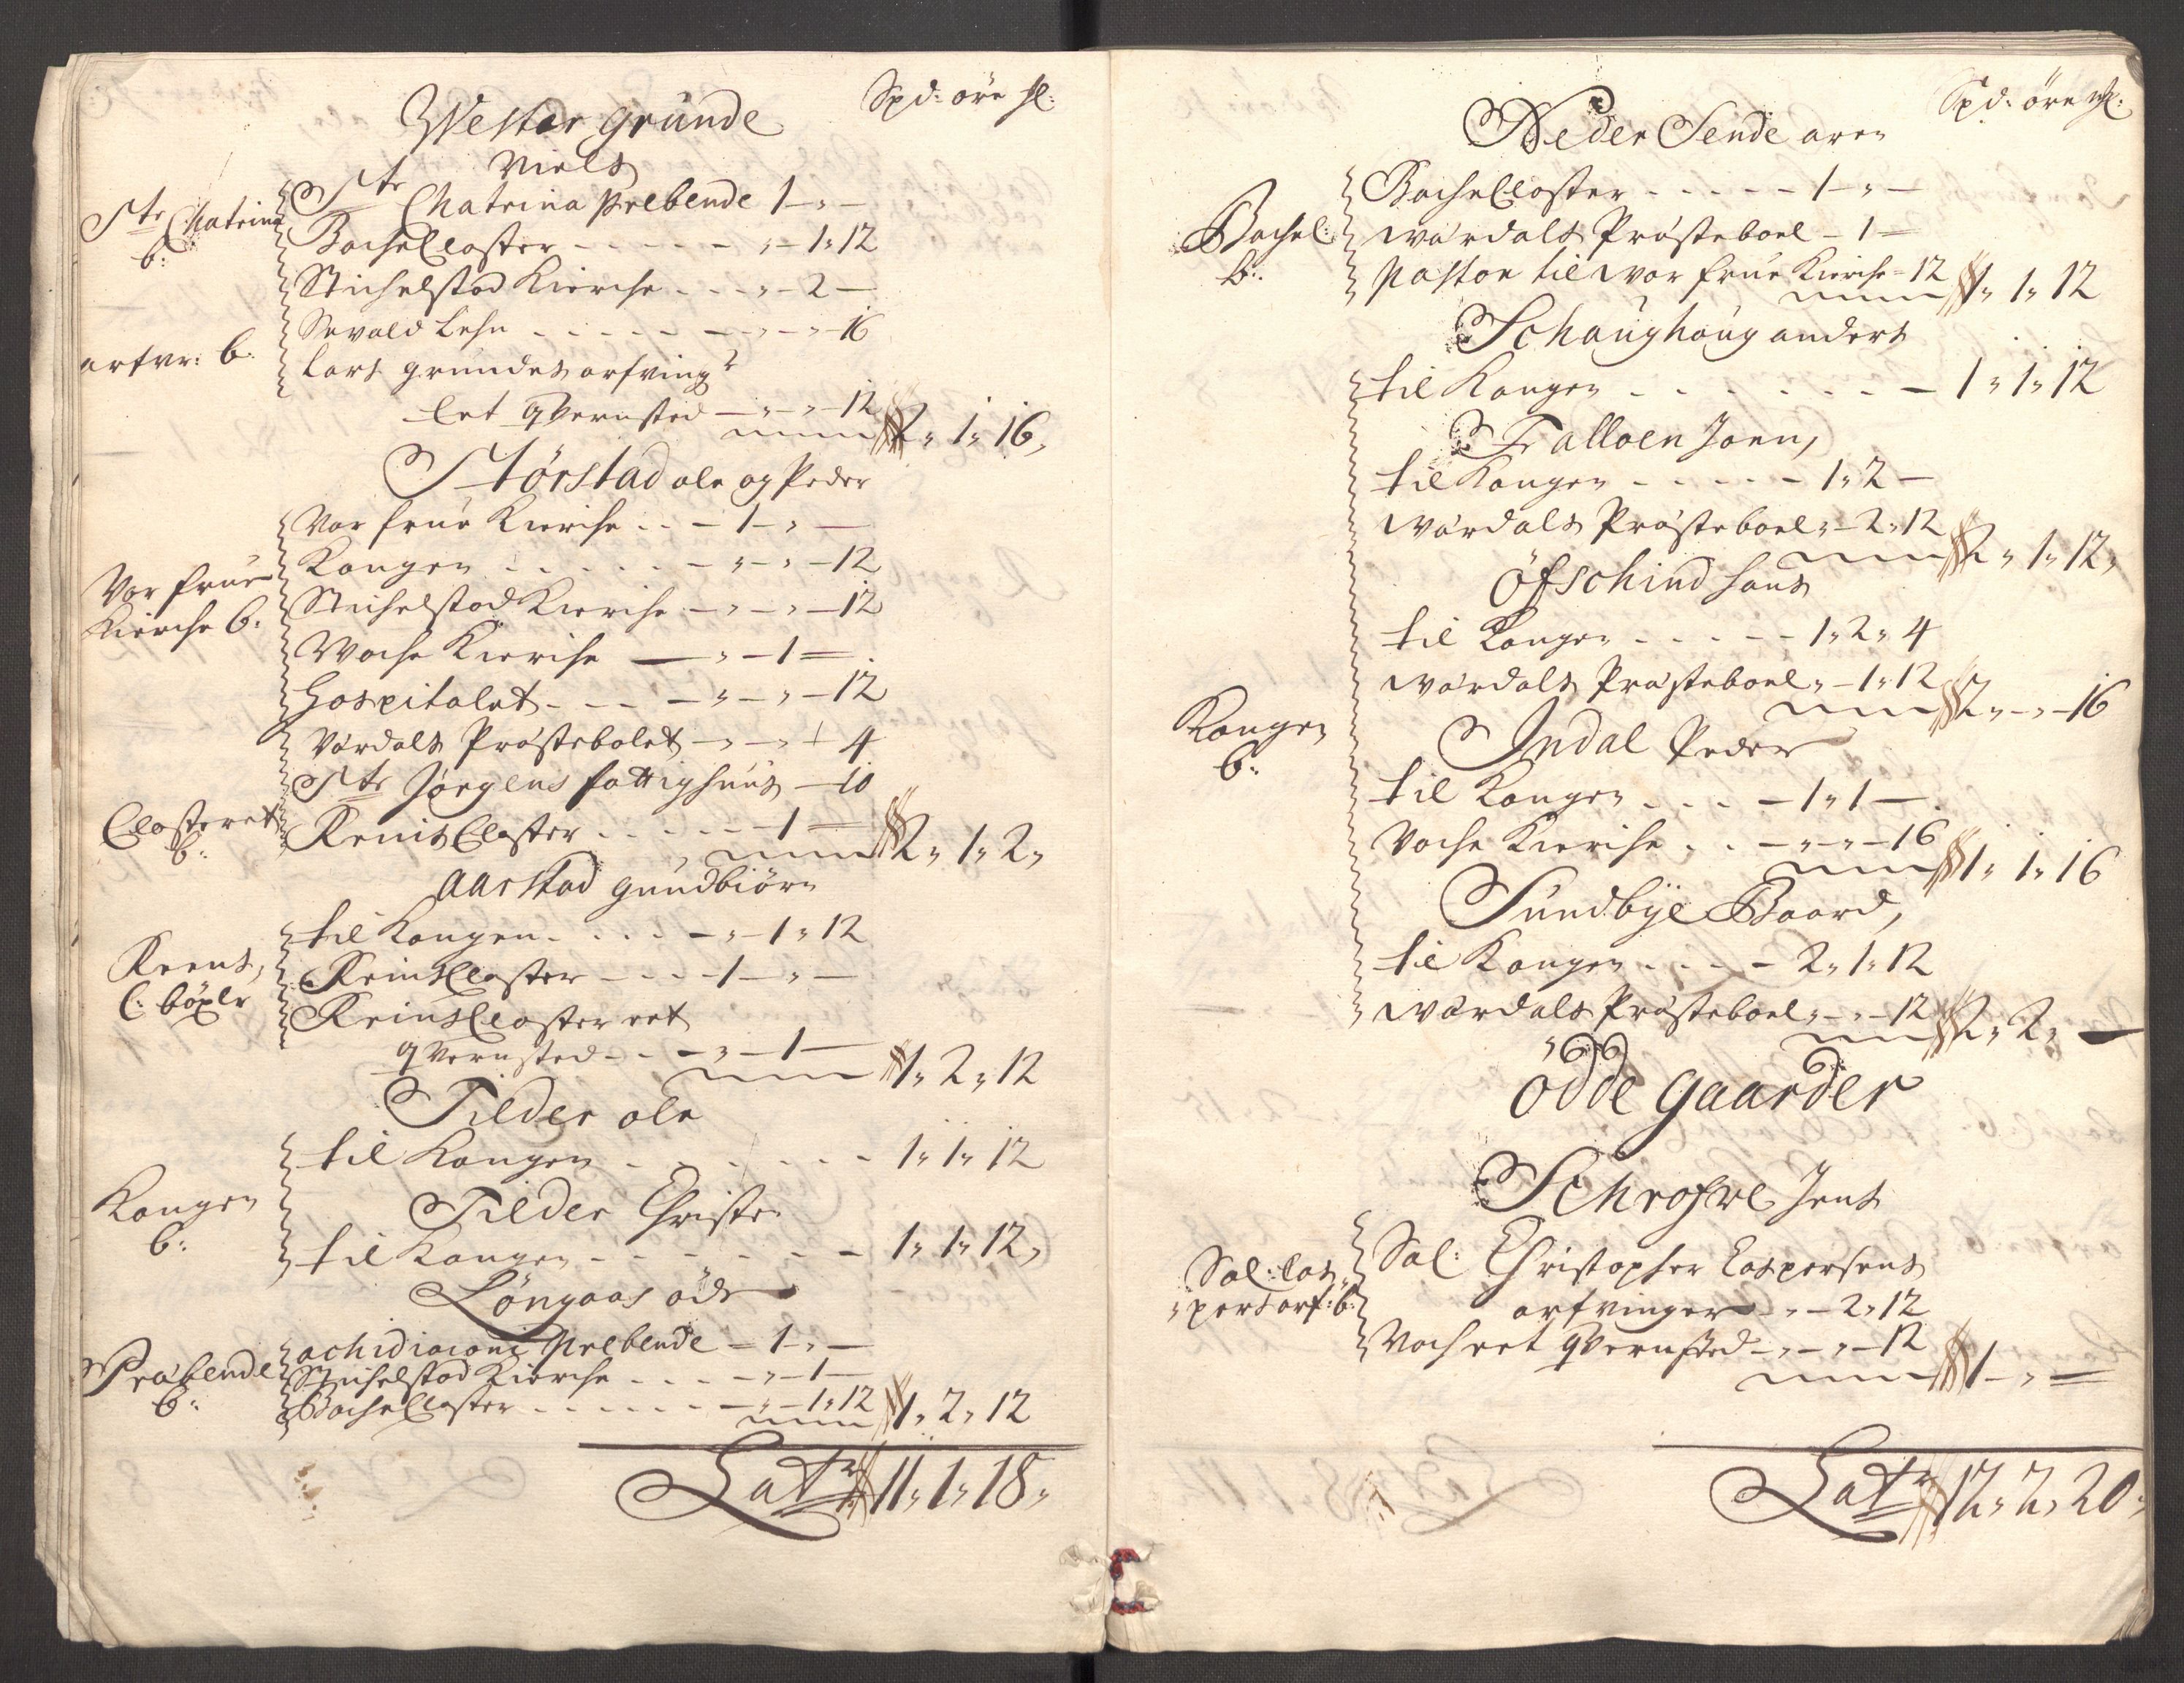 Spd: öre ßl:
Wester grunde
Niels
Str Chatrina b:
Str Chatrina Prebende 1 - " -
Bachecloster - - - - - " - 1 " 12
Stichelstad Kierche - - - " - 2 -
Sevald Lehn - - - - - " - " - 16
arfvr: b:
Lars grundes arfving
Let qvernsted - " - " - 12
2 " 1 " 16 "
Störstad ole og Peder
Vor frue Kierche b:
Vor frue Kierche - - 1 - " -
Kongen - - - - - " - " - 12
Stichelstad Kierche - " - " - 12
Woche Kierche - " - 1 =
Hospitalet - - - " - " - 12
Vardals Præstebolet - " - " + 4
Str Jørgens fattighuus - 10
Closteret b:
Reins Closter - - - - - 1 =
2 " 1 " 2 "
Aarstad gundbiörn
til Kongen - - - - " - 1 " 12
Reens, C: böxler
Reins Closter - - - 1 - " -
Reins Closter eet
qvernsted - - - " - 1 -
1 " 2 " 12
Tilder ole
til Kongen - - - - - - 1 " 1 " 12
Kongen b:
Tilder Christen
til Kongen - - - - - - - 1 " 1 " 12 "
Löngaas öde
Præbende b:
achidiaconi Prebende - 1 - " -
Stichelstad Kierche - - - - " - 1 -
Bache Closter - - - - - - " - 1 " 12
1 " 2 " 12
Latr 11 " 1 " 18 "
Spd: öre ßl:
Neder Sende aren
Bachel: b:
Bache Closter - - - - - 1 - " -
wardals Præsteboel - 1 -
Pastor til wor frue Kierche = 12
1 " 1 " 12
Schaughoug anders
til Kongen - - - - - - - 1 " 1 " 12
Falloen Joen,
til Kongen - - - - - 1 " 2 -
wardals Præsteboel " - 2 " 12
2 " 1 " 12 "
Öfschind hans
til Kongen - - - - - 1 " 2 " 4
wardals Præsteboel " - 1 " 12
2 " - " - 16
Kongen b:
Indal Peder
til Kongen - - - - 1 " 1 -
Voche Kierche - - - " - " - 16
1 " 1 " 16
Sundbye Baard,
til Kongen - - - - 2 " 1 " 12
wardals Præsteboel " - " - 12
2 " 2 " -
Ödde gaarder
Schrofve Jens
Sal: Cas
persarf: b:
Sal: Christopher Caspersens
arfvinger - " - 2 " 12
Noch eet qvernsted - " - " - 12
1 - " =
Latr 12 " 2 " 20 "